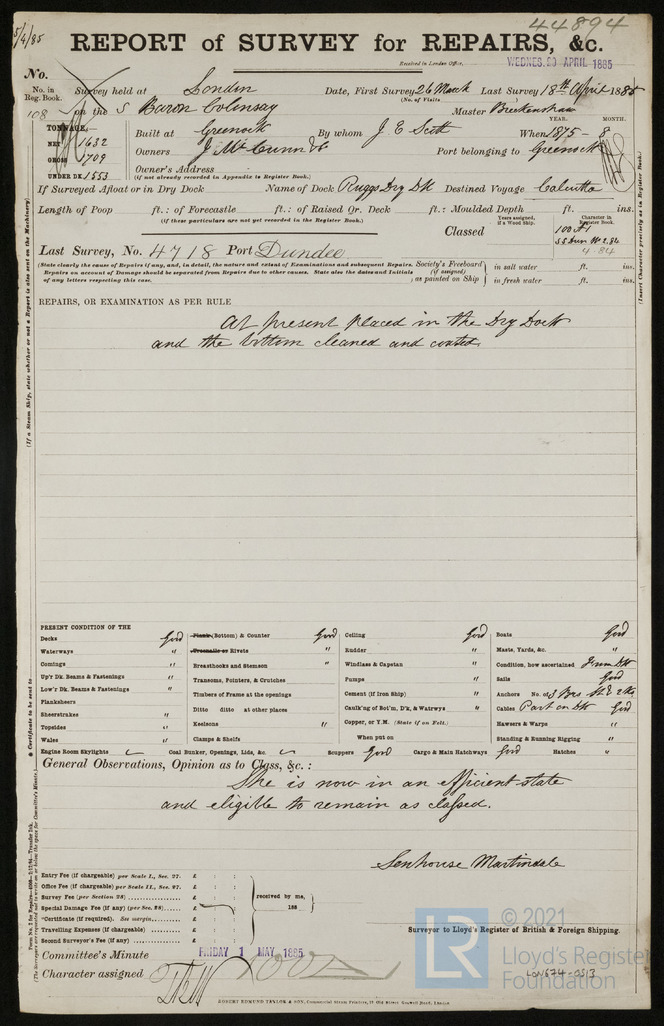 5/4/85
44894
REPORT of SURVEY for REPAIRS, &c.
Received in London Office, WEDNES. 29 APRIL 1885
No.
No. in Reg. Book. Survey held at London Date, First Survey 26 March Last Survey 18th April 1885
(No. of Visits
108 on the S Baron Colonsay Master
TONNAGE. YEAR. MONTH.
NET 1632 Built at Greenock By whom J E Scott When 1875 - 8
GROSS 1709 Owners J McCunn & Co Port belonging to Greenock
UNDER DK 1553 Owner's Address
(if not already recorded in Appendix to Register Book.)
If Surveyed Afloat or in Dry Dock Name of Dock Ruggs Dry Dk Destined Voyage Calcutta
Length of Poop ft.: of Forecastle ft.: of Raised Qr. Deck ft.: Moulded Depth ft. ins.
(if these particulars are not yet recorded in the Register Book.)
Years assigned, if a Wood Ship. Character in Register Book.
Classed 100 A1
Last Survey, No. 4718 Port Dundee
4 84
(State clearly the cause of Repairs if any, and, in detail, the nature and extent of Examinations and subsequent Repairs.
Repairs on account of Damage should be separated from Repairs due to other causes. State also the dates and Initials
of any letters respecting this case.
Society's Freeboard (if assigned) as painted on Ship
in salt water ft. ins.
in fresh water ft. ins.
REPAIRS, OR EXAMINATION AS PER RULE
At present placed in the Dry Dock
and the bottom cleaned and coated.
PRESENT CONDITION OF THE
Decks Good
Waterways "
Comings "
Up'r Dk. Beams & Fastenings "
Low'r Dk. Beams & Fastenings "
Planksheers
Sheerstrakes "
Topsides "
Wales "
Engine Room Skylights
Plank (Bottom) & Counter Good
Treenails or Rivets "
Breasthooks and Stemson "
Transoms, Pointers, & Crutches
Timbers of Frame at the openings
Ditto ditto at other places
Keelsons "
Clamps & Shelfs
Coal Bunker, Openings, Lids, &c.
Ceiling Good
Rudder "
Windlass & Capstan "
Pumps "
Cement (if Iron Ship) "
Caulk'ng of Bot'm, D'k, & Watrwys "
Copper, or Y.M. (State if on Felt.)
When put on
Scuppers Good
Cargo & Main Hatchways Good
Boats Good
Masts, Yards, &c. "
Condition, how ascertained From Dk
Sails Good
Anchors No. of
Cables Part on Dk
Hawsers & Warps "
Standing & Running Rigging "
Hatches "
General Observations, Opinion as to Class, &c.:
She is now in an efficient state
and eligible to remain as classed.
Senhouse Martindale
Surveyor to Lloyd's Register of British & Foreign Shipping.
Entry Fee (if chargeable) per Scale I., Sec. 27. £ : :
Office Fee (if chargeable) per Scale II., Sec. 27. £ : :
Survey Fee (per Section 28) £ : :
Special Damage Fee (if any) (per Sec. 28) £ : :
*Certificate (if required). See margin £ : :
Travelling Expenses (if chargeable) £ : :
Second Surveyor's Fee (if any) £ : :
received by me,
188
Committee's Minute FRIDAY 1 MAY 1885
Character assigned 100A
ROBERT EDMUND TAYLOR & SON, Commercial Steam Printers, 19 Old Street, Goswell Road, London
(If a Steam Ship, state whether or not a Report is also sent on the Machinery)
* Certificate to be sent to
(Insert Character precisely as in Register Book.)
LR © 2021
Lloyd's Register
Foundation
LON674-0513